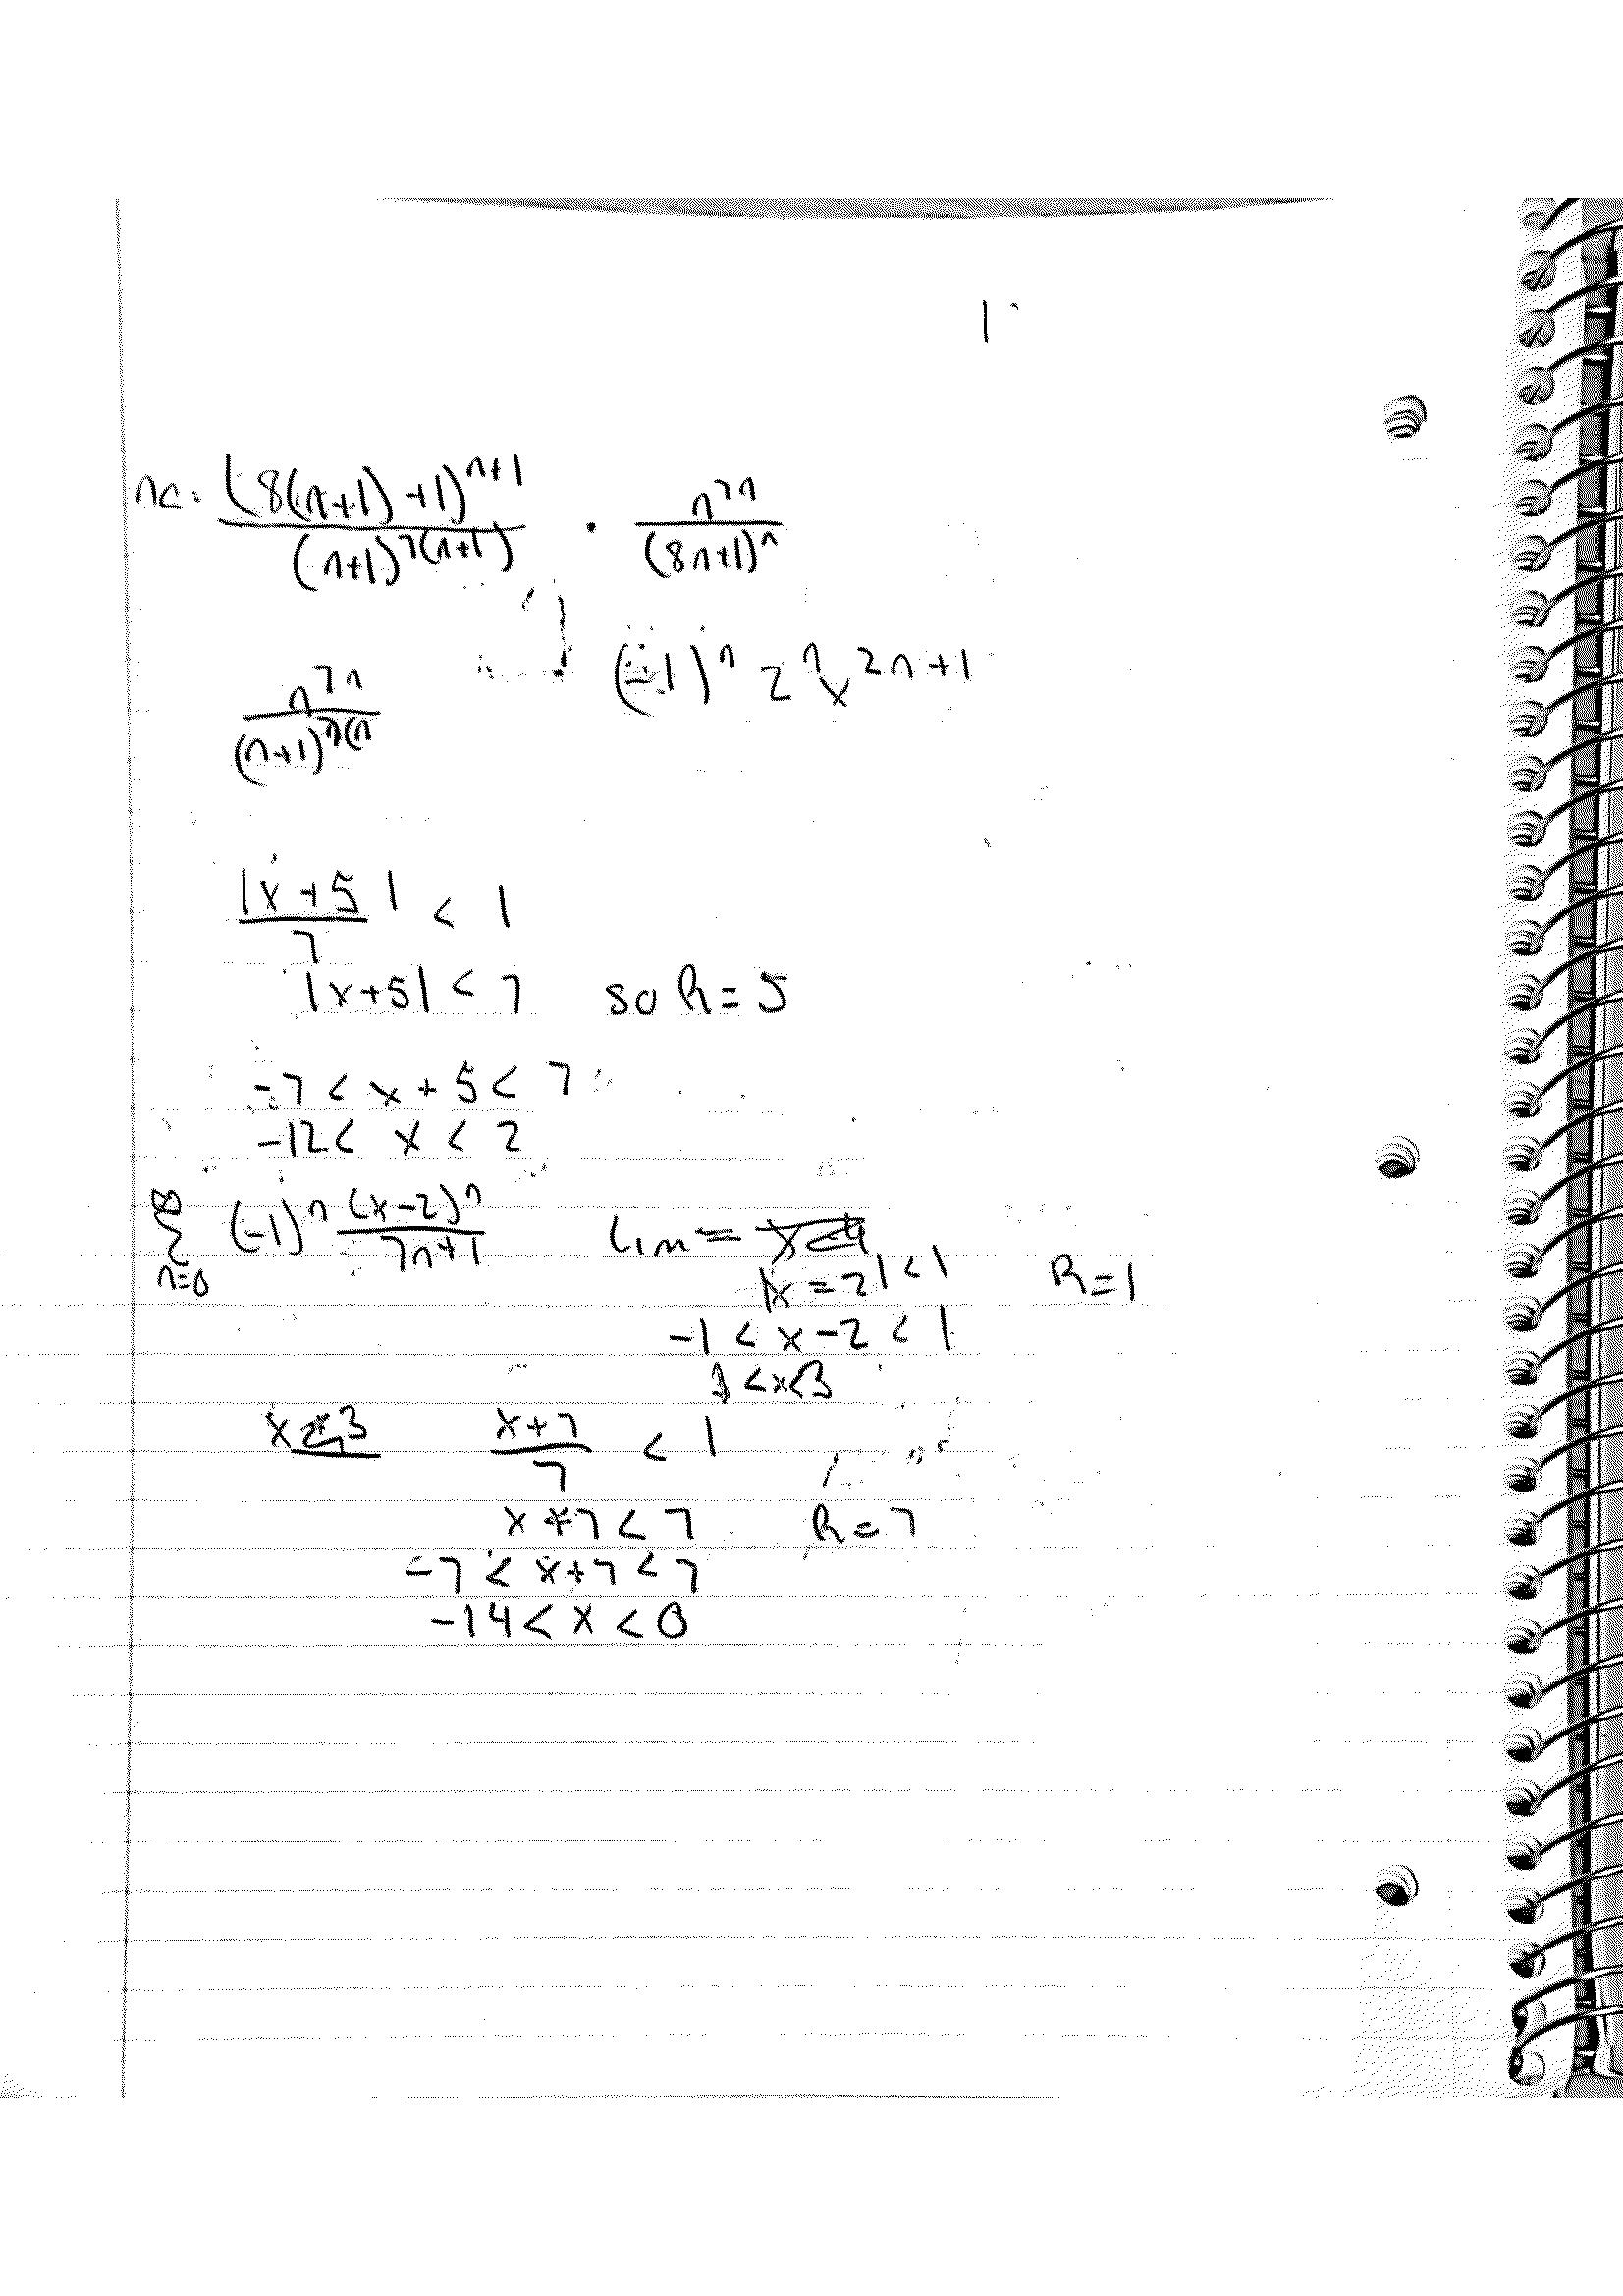 (8(n+1)+1)^{n+1} / (n+1)^{7(n+1)} · n^{7n} / (8n+1)^n
(-1)^n 2^n x^{2n+1}
n^{7n} / (n+1)^{7(n
|x+5| / 7 < 1
|x+5| < 7 so R = 5
-7 < x + 5 < 7
-12 < x < 2
∞ Σ n=0 (-1)^n (x-2)^n / 7n+1 Lim =
|x = 2| < 1 R = 1
-1 < x - 2 < 1
1 < x < 3
x+7 / 7 < 1
x+7 < 7 R = 7
-7 < x+7 < 7
-14 < x < 0